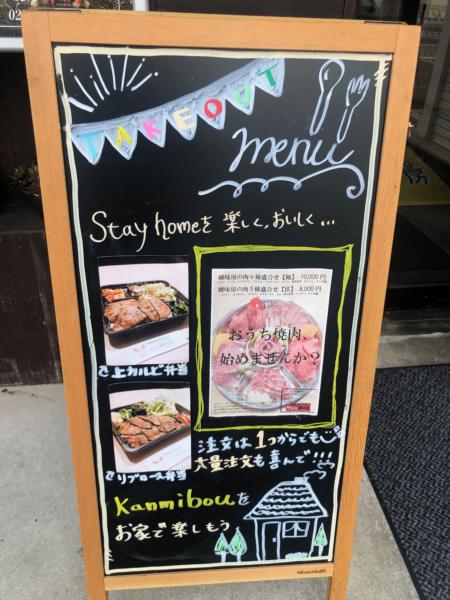 TAKEOUT
menu
Stay homeを楽しく、おいしく…
韓味房の肉6種盛合せ【極】10,000円
韓味房の肉5種盛合せ【匠】8,000円
おうち焼肉、
始めませんか？
上カルビ弁当
リブロース弁当
注文は1つからでも
大量注文も喜んで!!!
Kanmibouを
お家で楽しもう